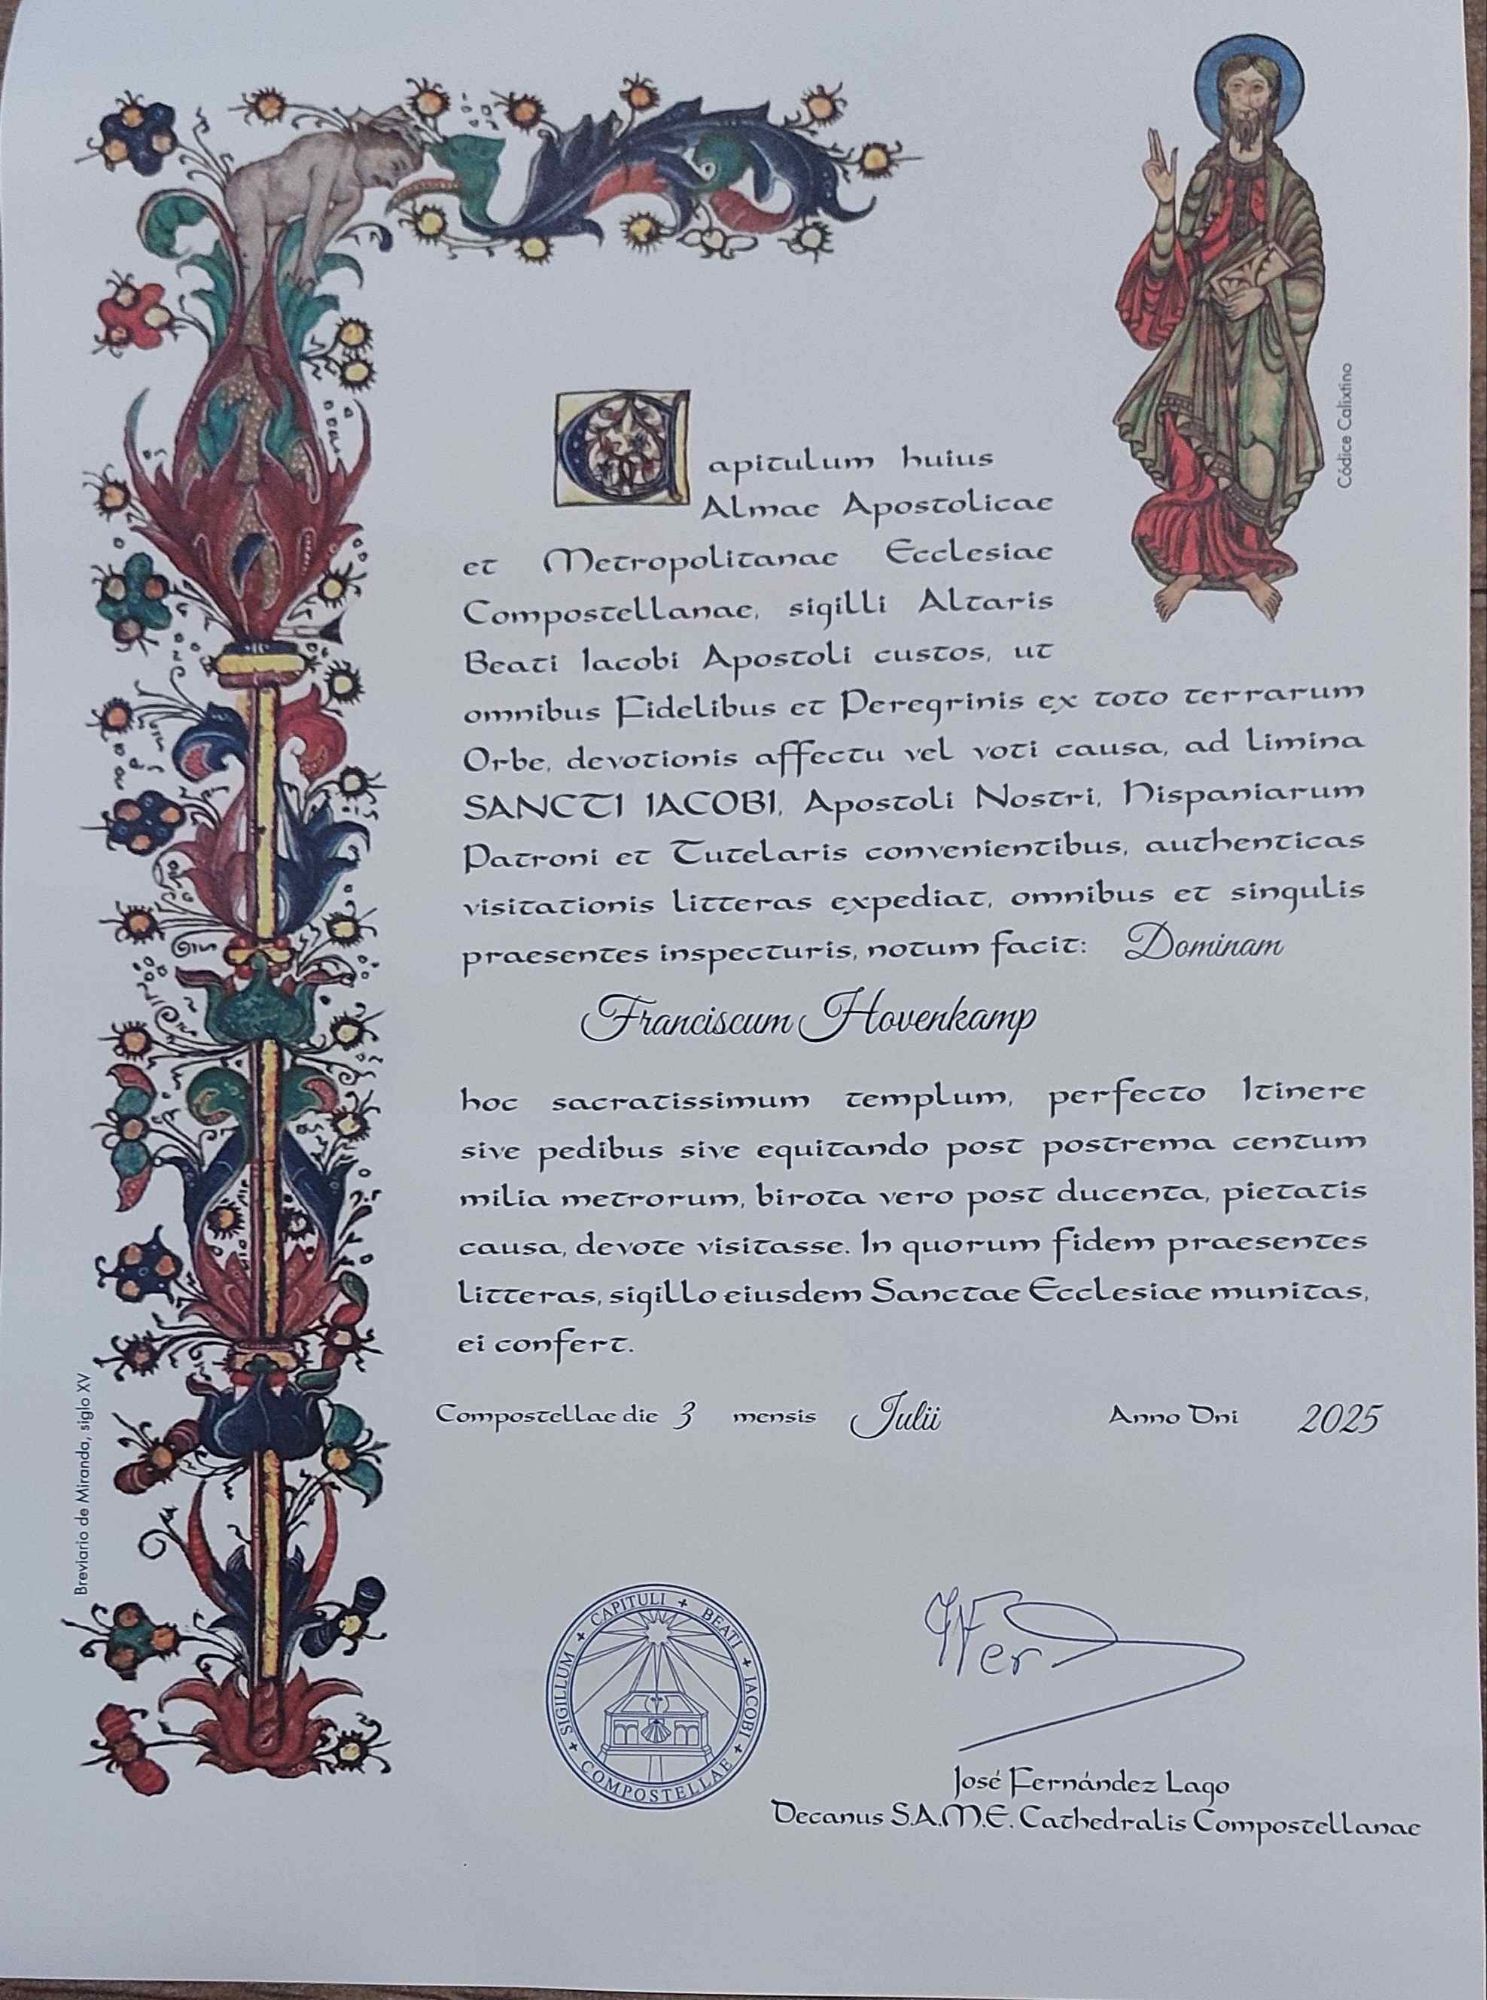 Capitulum huius
Almae Apostolicae
et Metropolitanae Ecclesiae
Compostellanae, sigilli Altaris
Beati Iacobi Apostoli custos, ut
omnibus Fidelibus et Peregrinis ex toto terrarum
Orbe, devotionis affectu vel voti causa, ad limina
SANCTI IACOBI, Apostoli Nostri, Hispaniarum
Patroni et Tutelaris convenientibus, authenticas
visitationis litteras expediat, omnibus et singulis
praesentes inspecturis, notum facit: Dominam
Franciscum Hovenkamp
hoc sacratissimum templum, perfecto Itinere
sive pedibus sive equitando post postrema centum
milia metrorum, birota vero post ducenta, pietatis
causa, devote visitasse. In quorum fidem praesentes
litteras, sigillo eiusdem Sanctae Ecclesiae munitas,
ei confert.
Compostellae die 3 mensis Julii Anno Dni 2025
SIGILLUM + CAPITULI + BEATI + IACOBI + COMPOSTELLAE +
José Fernández Lago
Decanus S.A.M.E. Cathedralis Compostellanae
Códice Calixtino
Breviario de Miranda, siglo XV